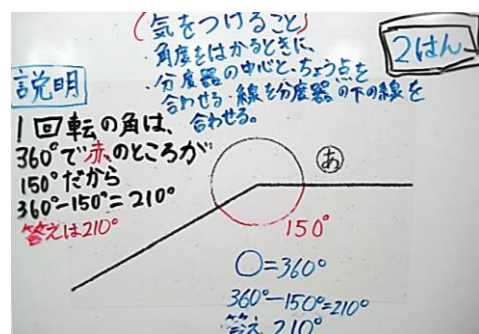 (気をつけること)
・角度をはかるときに、
・分度器の中心と、ちょう点を
合わせる・線を分度器の下の線を
合わせる。
2はん
説明
1回転の角は、
360°で赤のところが
150°だから
360°-150°=210°
答えは210°
あ
150°
○=360°
360°-150°=210°
答え 210°